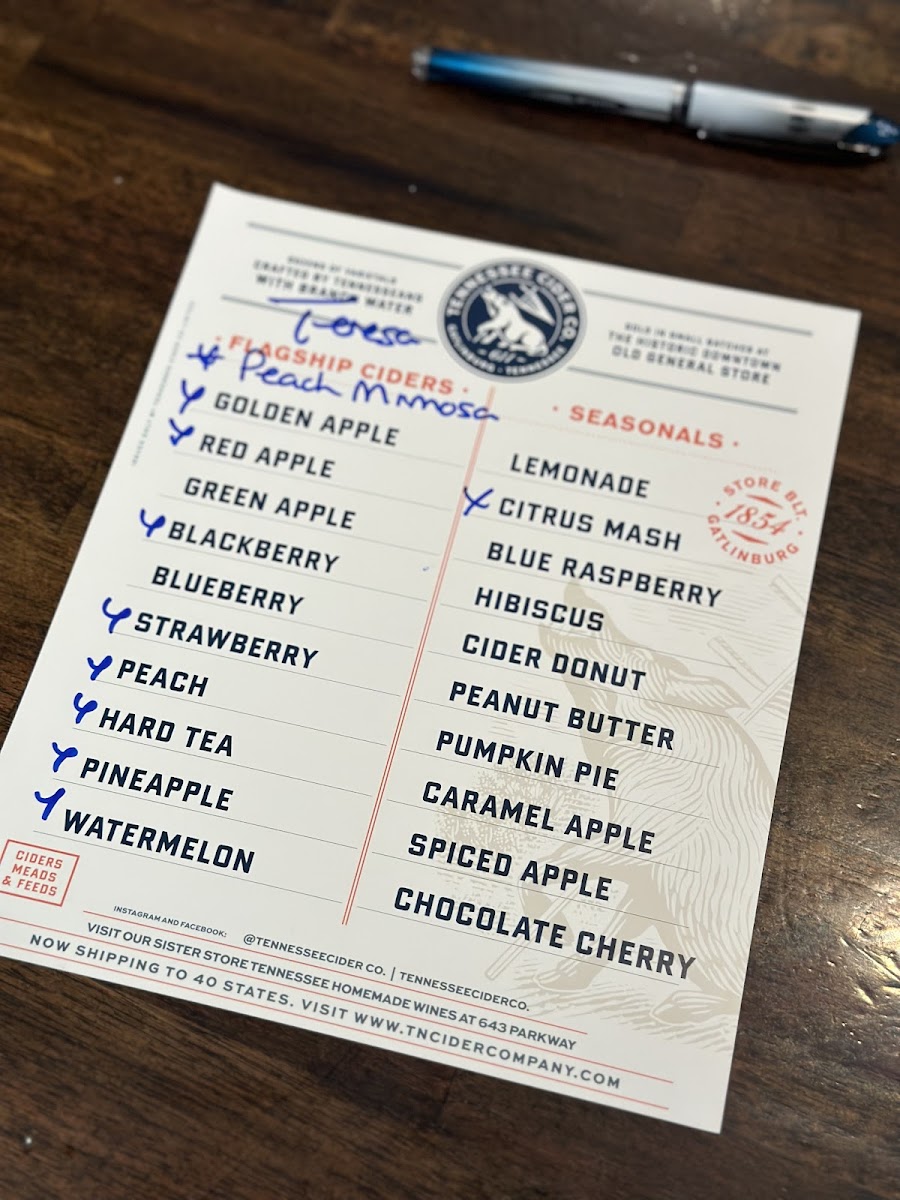 CRAFTED BY TENNESSEANS
WITH BRANCH WATER
TENNESSEE CIDER CO.
GATLINBURG · TENNESSEE
SOLD IN SMALL BATCHES AT
THE HISTORIC DOWNTOWN
OLD GENERAL STORE
Teresa
· FLAGSHIP CIDERS ·
Peach Mimosa
GOLDEN APPLE
RED APPLE
GREEN APPLE
BLACKBERRY
BLUEBERRY
STRAWBERRY
PEACH
HARD TEA
PINEAPPLE
WATERMELON
· SEASONALS ·
LEMONADE
CITRUS MASH
BLUE RASPBERRY
HIBISCUS
CIDER DONUT
PEANUT BUTTER
PUMPKIN PIE
CARAMEL APPLE
SPICED APPLE
CHOCOLATE CHERRY
STORE BLT.
1854
GATLINBURG
CIDERS
MEADS
& FEEDS
INSTAGRAM AND FACEBOOK: @TENNESSEECIDER CO. | TENNESSEECIDERCO.
VISIT OUR SISTER STORE TENNESSEE HOMEMADE WINES AT 643 PARKWAY
NOW SHIPPING TO 40 STATES. VISIT WWW.TNCIDERCOMPANY.COM